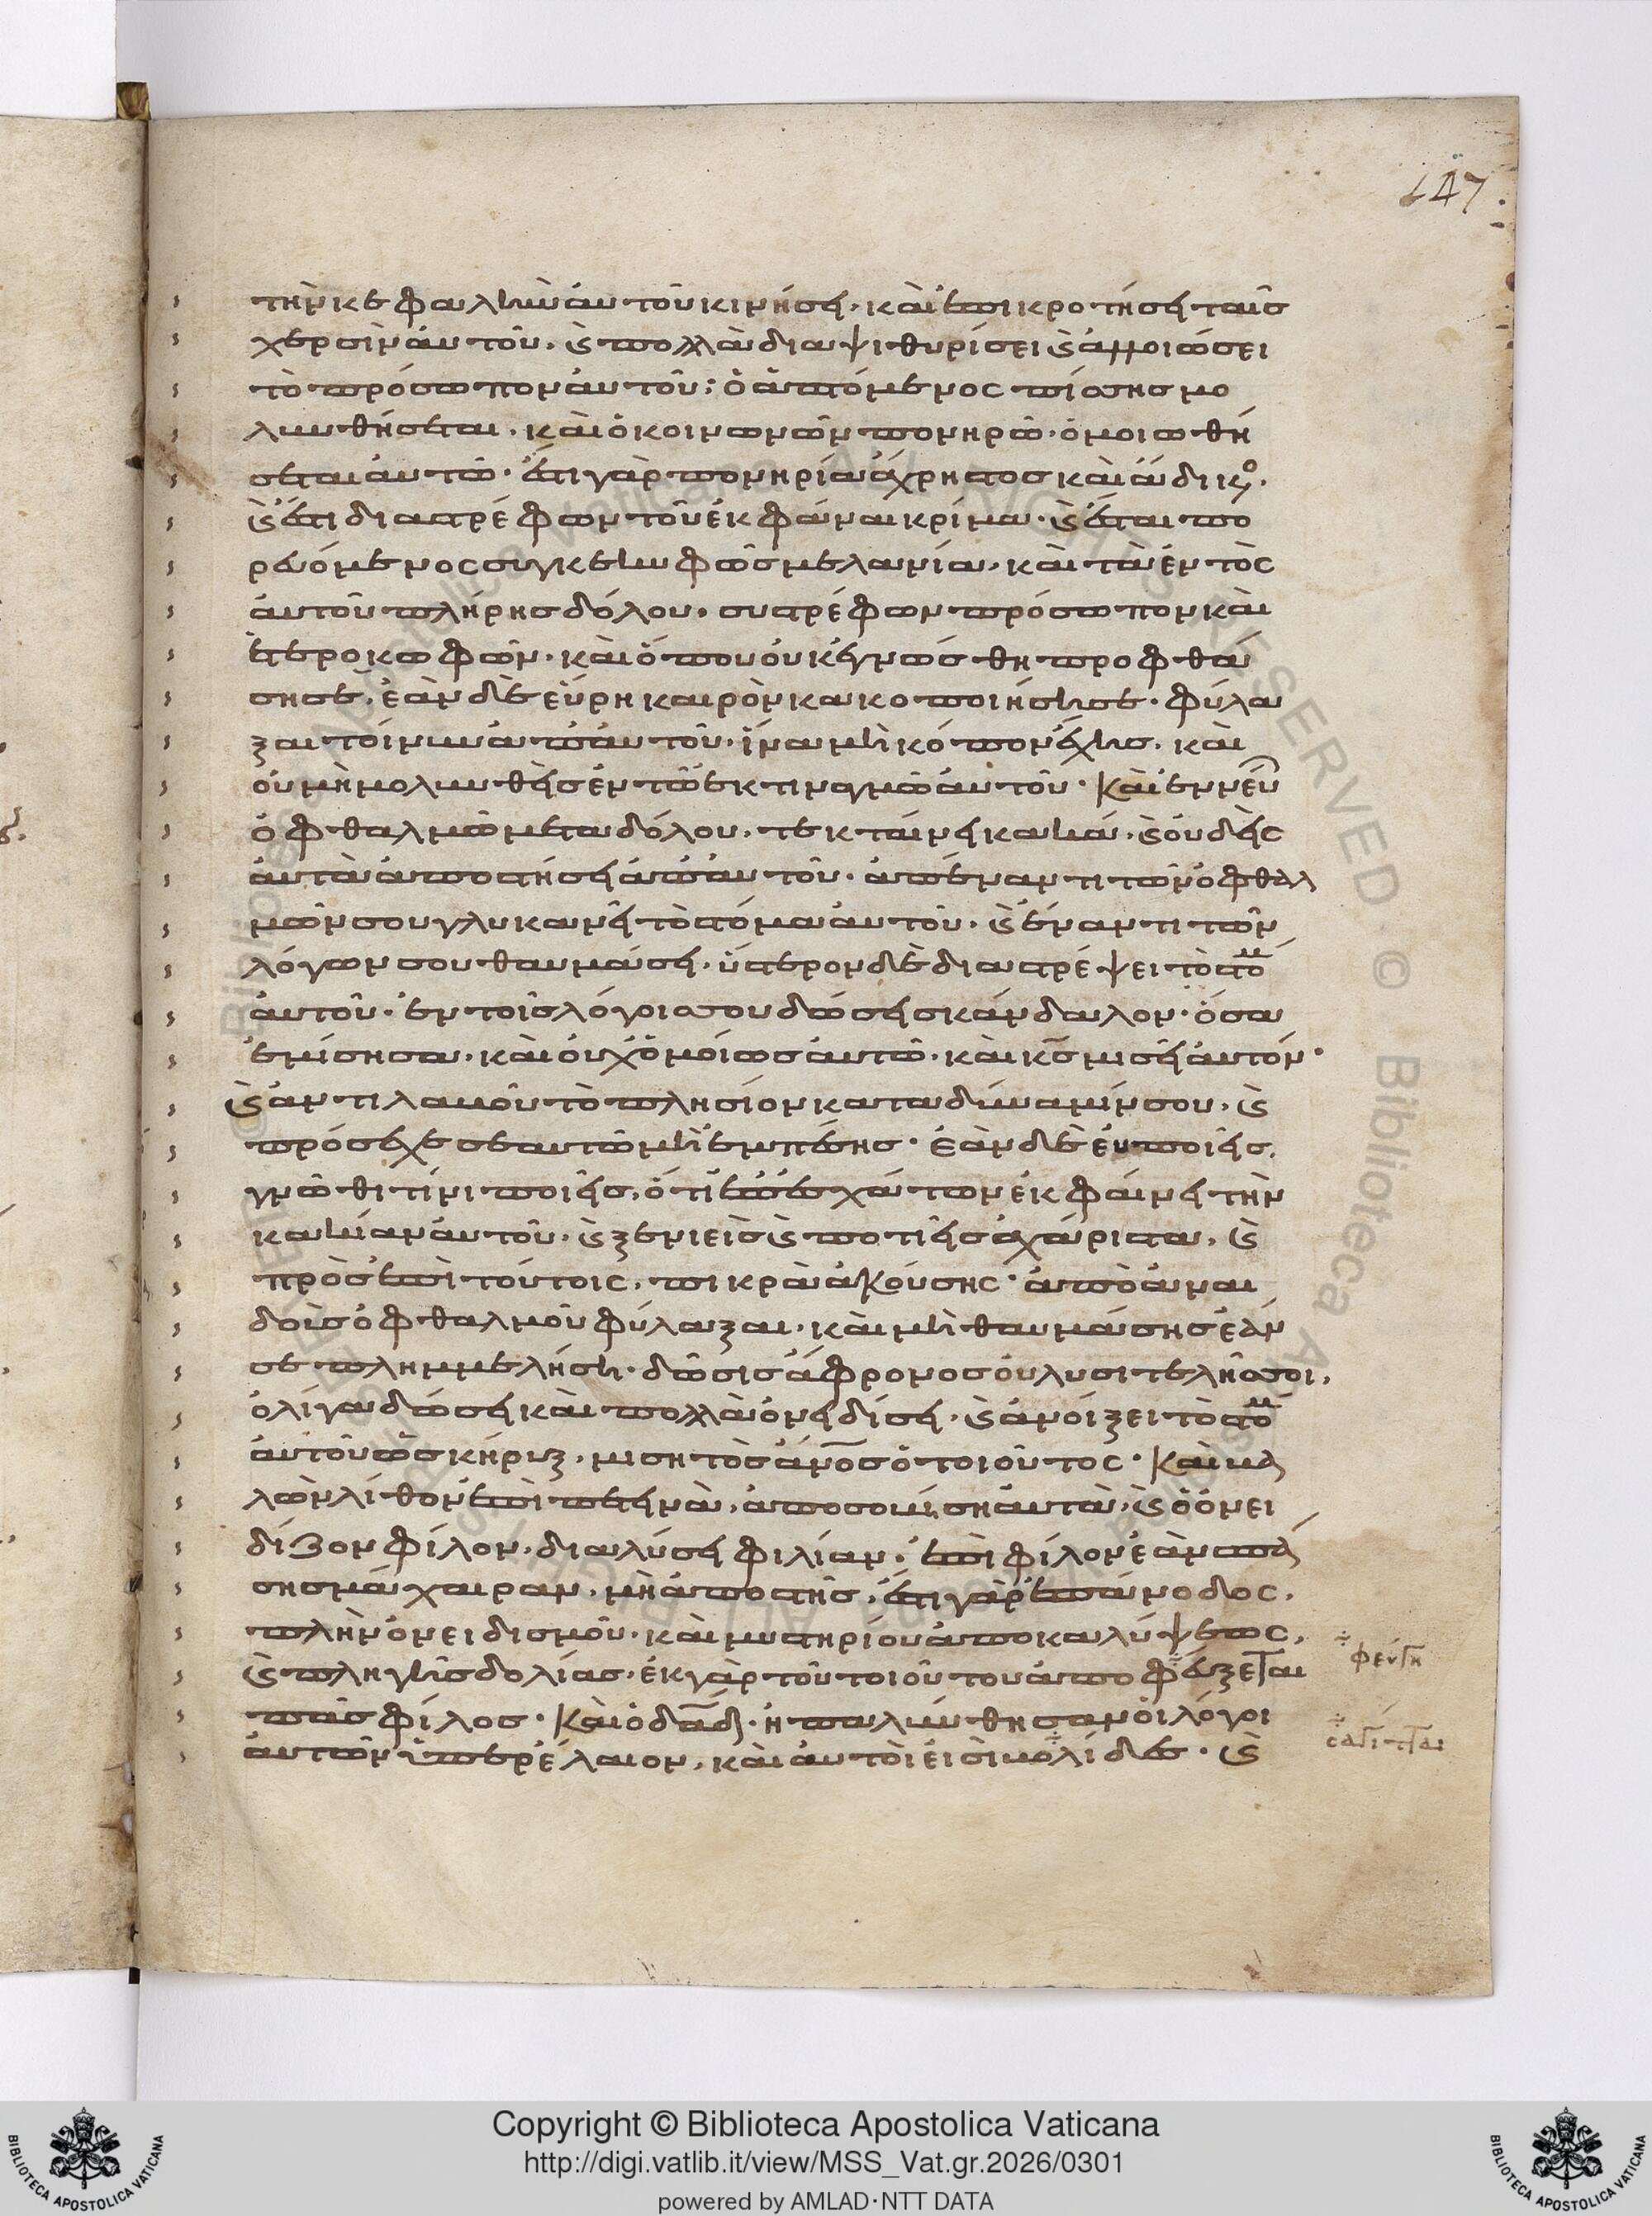 147
τὴν κεφαλὴν αὐτοῦ κινήσει· καὶ ἐπικροτήσει ταῖς
χερσὶν αὐτοῦ. καὶ πολλὰ διαψιθυρίσει καὶ ἀλλοιώσει
τὸ πρόσωπον αὐτοῦ: ὁ ἁπτόμενος πίσσης μο
λυνθήσεται. καὶ ὁ κοινωνῶν πονηρῶ. ὁμοιωθή
σεται αὐτῶ. ἔστι γὰρ πονηρία ἄχρηστος καὶ ἄδικο.
καὶ ἔστι διαστρέφων τοῦ ἐκφάναι κρίμα. καὶ ἔσται πο
ρευόμενος συγκεκυφὼς μελανία. καὶ τὰ ἐντὸς
αὐτοῦ πλήρης δόλου. συστρέφων πρόσωπον καὶ
ἑτεροκωφῶν. καὶ ὅπου οὐκ ἐγνώσθη προφθά
ση σε. ἐὰν δὲ εὕρη καιρὸν κακοποιήση σε. φύλα
ξαι τοίνυν ἀπ' αὐτοῦ. ἵνα μὴ κόπον ἔχης. καὶ
οὐ μὴ μολυνθῆς ἐν τῶ ἐκτιναγμῶ αὐτοῦ. καὶ ἐννεύ
ὀφθαλμῶ μετὰ δόλου. τεκταίνει κακά. καὶ οὐδεὶς
αὐτὰ ἀποστήσει ἀπ' αὐτοῦ. ἀπέναντι τῶν ὀφθαλ
μῶν σου γλυκανεῖ τὸ στόμα αὐτοῦ. καὶ ἔναντι τῶν
λόγων σου θαυμάσει. ὕστερον δὲ διαστρέψει τὸ στό
αὐτοῦ. ἐν τοῖς λόγοις σου δώσει σκάνδαλον. ὅσα
ἐμίσησα. καὶ οὐχ ὁμοίωσ αὐτῶ. καὶ κς μισεῖ αὐτόν.
καὶ ἀντιλαβοῦ τὸ πλησίον κατὰ δύναμίν σου. καὶ
πρόσεχε σεαυτῶ μὴ ἐμπέσης. ἐὰν δὲ εὖ ποιεῖς.
γνῶθι τίνι ποιεῖς. ὅτι ἐπ' ἐσχάτων ἐκφαίνει τὴν
κακίαν αὐτοῦ. καὶ ξενιεῖς καὶ ποτιεῖς ἀχάριστα. καὶ
πρὸς ἐπὶ τούτοις. πικρὰ ἀκούσης. ἀπὸ ἀναι
δοῖς ὀφθαλμοῦ φύλαξαι. καὶ μὴ θαυμάσης ἐάν
σε πλημμελήση. δῶσις ἄφρονος οὐ λυσιτελήσει σοι.
ὀλίγα δώσει καὶ πολλὰ ὀνειδίσει. καὶ ἀνοίξει τὸ στό
αὐτοῦ ὡς κῆρυξ. μισητὸς ἄνος ὁ τοιοῦτος. καὶ βα
λὼν λίθον ἐπὶ πετεινὰ. ἀποσοβήση αὐτὰ. καὶ ὁ ὀνει
δίζων φίλον. διαλύσει φιλίαν. ἐπὶ φίλον ἐὰν σπά
σης μάχαιραν. μὴ ἀποστῆς. ἔστι γὰρ ἐπάνοδος.
πλὴν ὀνειδισμοῦ. καὶ μυστηρίου ἀποκαλύψεως.
καὶ πληγῆς δολίας. ἐκ γὰρ τοῦ τοιούτου ἀποφεύξεται
φεύγει
πᾶς φίλος. καὶ ὁ δαδ. ἡπαλύνθησαν οἱ λόγοι
αὐτῶν ὑπὲρ ἔλαιον. καὶ αὐτοί εἰσι βολίδες. καὶ
σαγίτται
Copyright © Biblioteca Apostolica Vaticana
http://digi.vatlib.it/view/MSS_Vat.gr.2026/0301
powered by AMLAD·NTT DATA